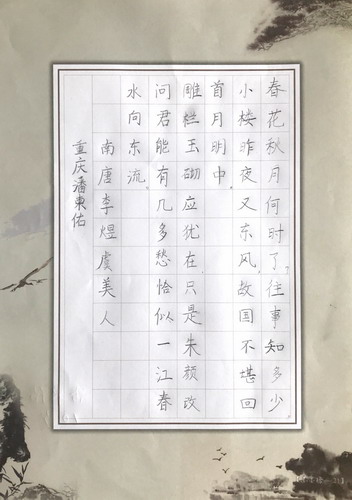 春花秋月何时了,往事知多少
小楼昨夜又东风,故国不堪回
首月明中.
雕栏玉砌应犹在.只是朱颜改
问君能有几多愁恰似一江春
水向东流.
南唐李煜虞美人
重庆潘东佑